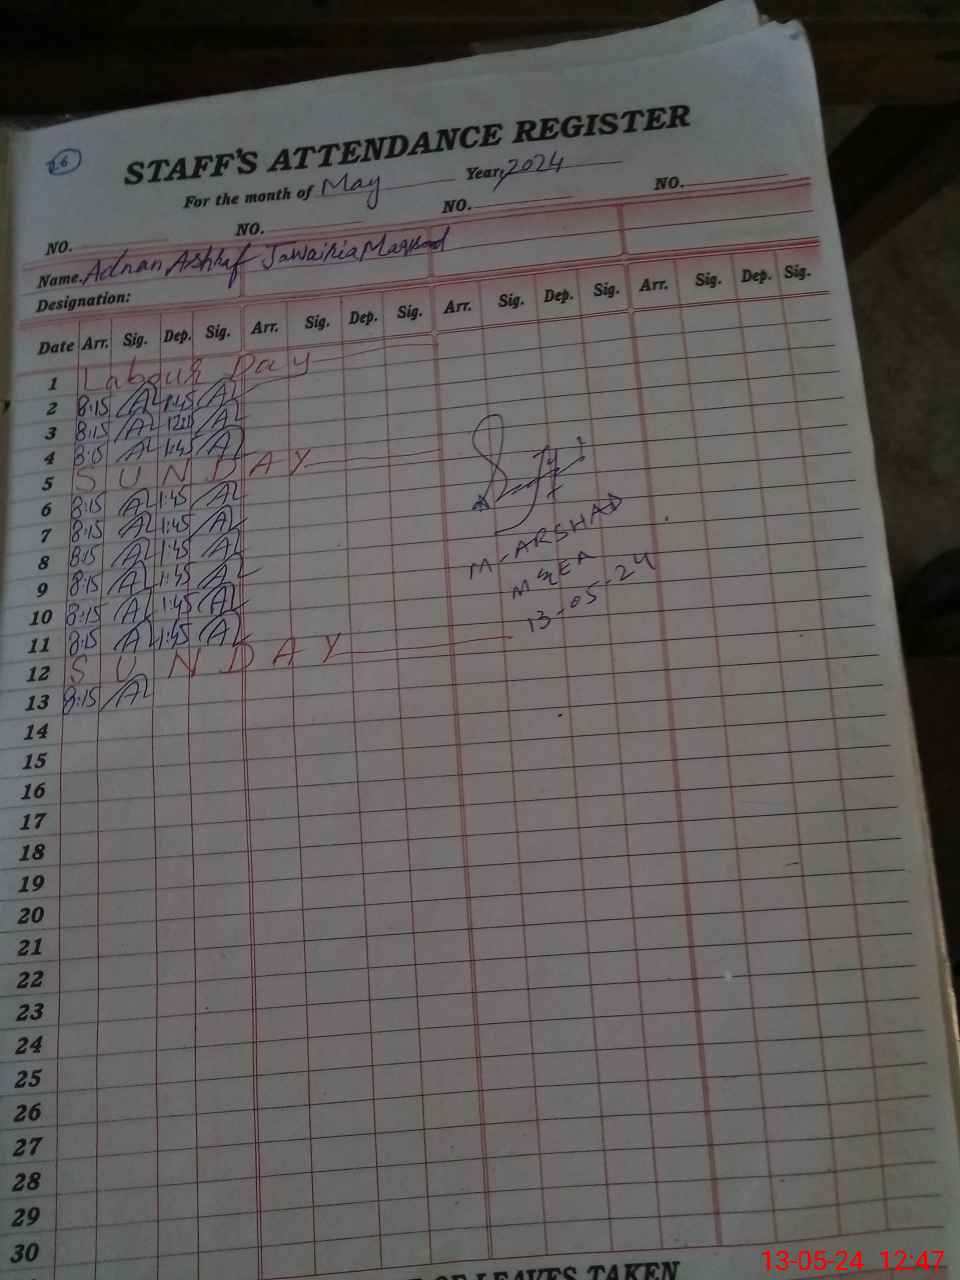 26
STAFF'S ATTENDANCE REGISTER
For the month of May Year, 2024
NO. NO. NO. NO.
Name. Adnan Ashraf Jawairia Maqsood
Designation:
Date Arr. Sig. Dep. Sig. Arr. Sig. Dep. Sig. Arr. Sig. Dep. Sig. Arr. Sig. Dep. Sig.
1 Labour Day
2 8:15 1:45
3 8:15 12:00
4 8:15 1:45
5 SUNDAY
6 8:15 1:45
7 8:15 1:45
8 8:15 1:45
9 8:15 1:45
10 8:15 1:45
11 8:15 1:45
12 SUNDAY
13 8:15
M-ARSHAD
M&EA
13-05-24
14
15
16
17
18
19
20
21
22
23
24
25
26
27
28
29
30
OF LEAVES TAKEN
13-05-24 12:47